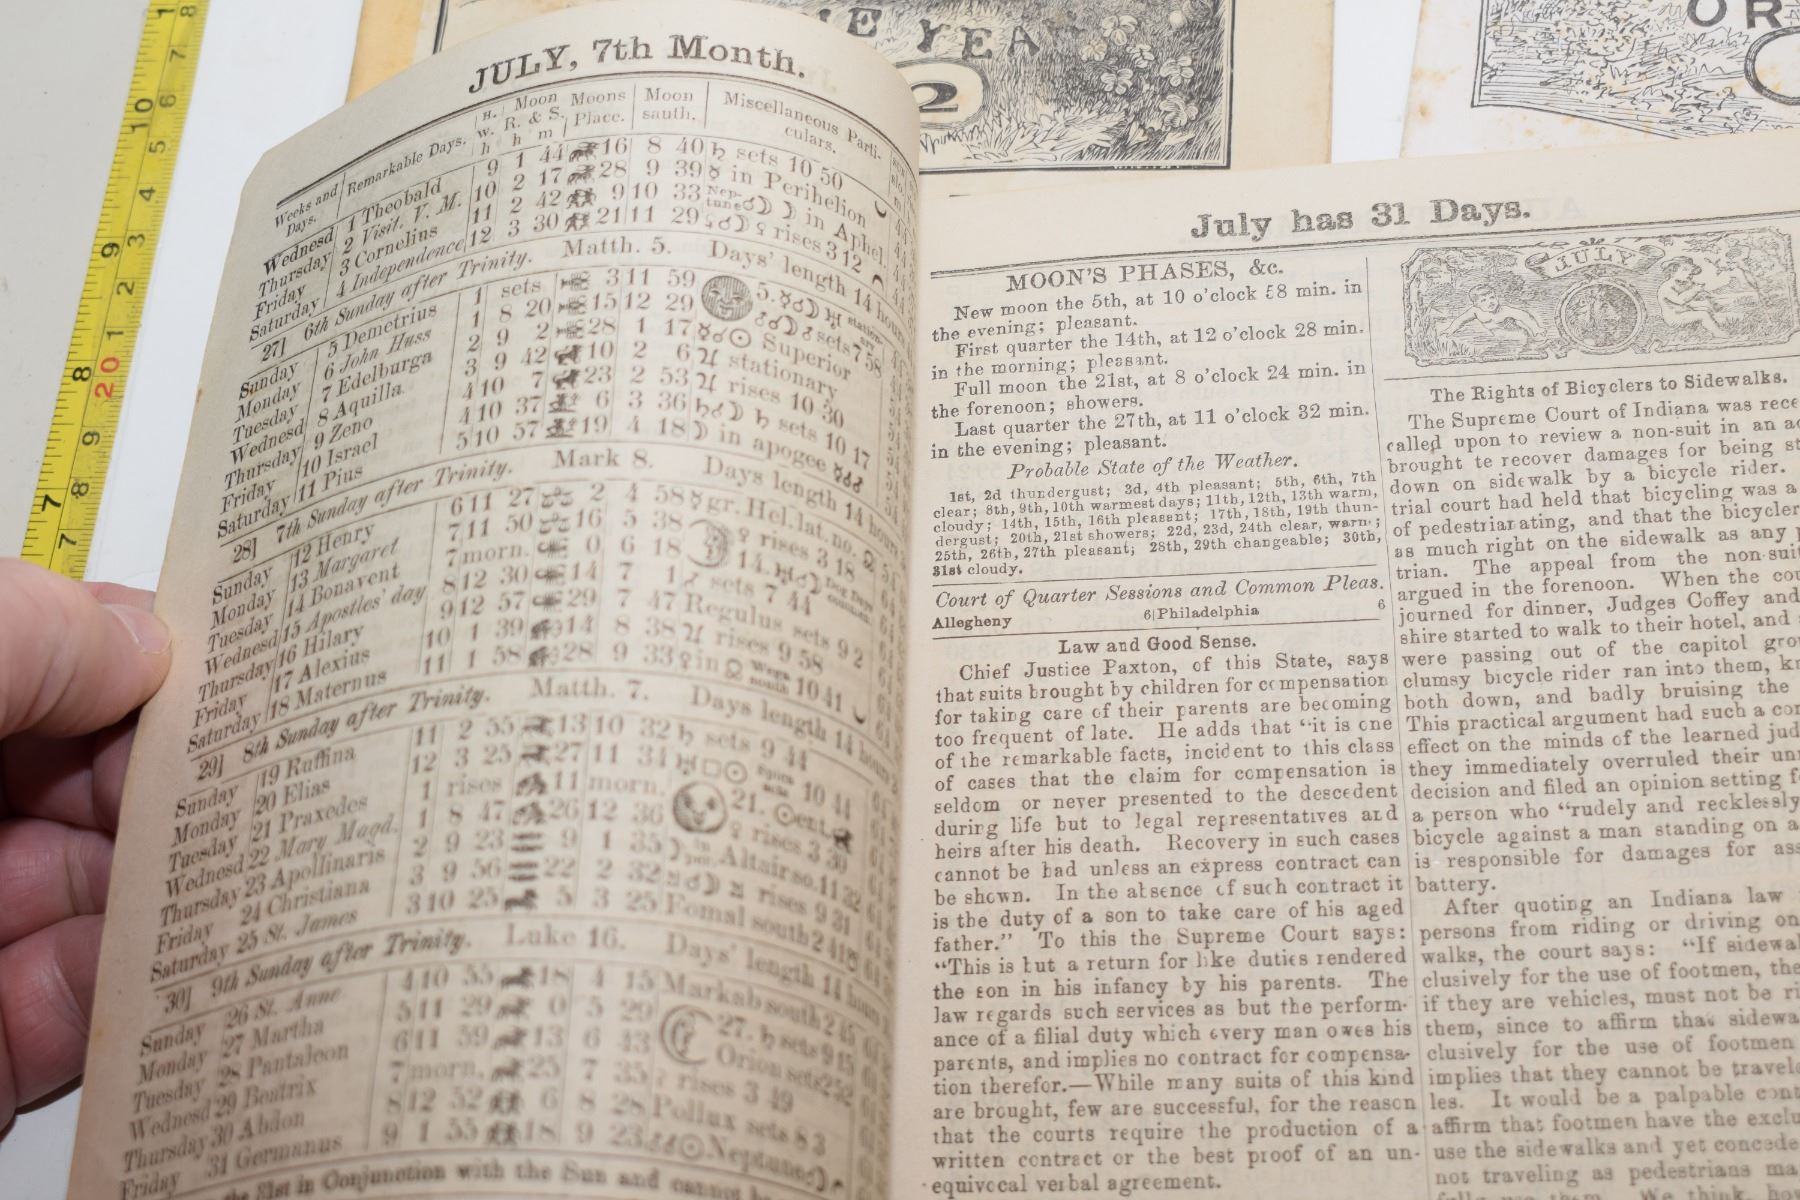 JULY, 7th Month.
Weeks and Days.
Remarkable Days.
H. W. h
Moon R. & S. h m
Moons Place.
Moon south.
Miscellaneous Particulars.
Wednesd 1 Theobald 9 1 44 16 8 40 ♄ sets 10 50
Thursday 2 Visit. V. M. 10 2 17 28 9 39 ☿ in Perihelion
Friday 3 Cornelius 11 2 42 9 10 33 Neptune ☌ ☽ ☽ in Aphel.
Saturday 4 Independence 12 3 30 21 11 29 ♀ ☌ ☽ ♀ rises 3 12
27] 6th Sunday after Trinity. Matth. 5. Days' length 14 hours
Sunday 5 Demetrius 1 sets 3 11 59 5. ☿ ☌ ☽ ♅ stationary
Monday 6 John Huss 1 8 20 15 12 29 ♂ ☌ ☽ ♂ sets 7 58
Tuesday 7 Edelburga 2 9 2 28 1 17 ☿ ☌ ☉ Superior
Wednesd 8 Aquilla 3 9 42 10 2 6 ♃ stationary
Thursday 9 Zeno 4 10 7 23 2 53 ♃ rises 10 30
Friday 10 Israel 4 10 37 6 3 36 ♄ ☌ ☽ ♄ sets 10 17
Saturday 11 Pius 5 10 57 19 4 18 ☽ in apogee
28] 7th Sunday after Trinity. Mark 8. Days length 14 hours
Sunday 12 Henry 6 11 27 2 4 58 ☿ gr. Hel. lat. no.
Monday 13 Margaret 7 11 50 16 5 38 ♀ rises 3 18
Tuesday 14 Bonavent 7 morn. 0 6 18 14. ♅ ☌ ☽ Dog Days
Wednesd 15 Apostles' day 8 12 30 14 7 1 ♂ sets 7 44
Thursday 16 Hilary 9 12 57 29 7 47 Regulus sets 9 2
Friday 17 Alexius 10 1 39 14 8 38 ♃ rises 9 58
Saturday 18 Maternus 11 1 58 28 9 33 ♀ in ☊ Vega south 10 41
29] 8th Sunday after Trinity. Matth. 7. Days length 14 hours
Sunday 19 Ruffina 11 2 55 13 10 32 ♄ sets 9 44
Monday 20 Elias 12 3 25 27 11 34 ♅ □ ☉ 10 44
Tuesday 21 Praxedes 1 rises 11 morn. 21. ☉ ent.
Wednesd 22 Mary Magd. 1 8 47 26 12 36 ♀ rises 3 30
Thursday 23 Apollinaris 2 9 23 9 1 35 ☽ in per. Altair so. 11 32
Friday 24 Christiana 3 9 56 22 2 32 ♃ ☌ ☽ ♃ rises 9 31
Saturday 25 St. James 3 10 25 5 3 25 Fomal south 2
30] 9th Sunday after Trinity. Luke 16. Days' length 14 hours
Sunday 26 St. Anne 4 10 55 18 4 15 Markab south 2 45
Monday 27 Martha 5 11 29 0 5 29 27. ♄ sets 9 15
Tuesday 28 Pantaleon 6 11 59 13 6 43 Orion sets 2 52
Wednesd 29 Beatrix 7 morn, 25 7 35 ♀ rises 3 49
Thursday 30 Abdon 8 12 52 6 8 28 Pollux sets 8 3
Friday 31 Germanus 9 1 55 18 9 23 ☉ Neptune
31st in Conjunction with the Sun and cannot
YEA
2
OR
July has 31 Days.
MOON'S PHASES, &c.
New moon the 5th, at 10 o'clock 58 min. in
the evening; pleasant.
First quarter the 14th, at 12 o'clock 28 min.
in the morning; pleasant.
Full moon the 21st, at 8 o'clock 24 min. in
the forenoon; showers.
Last quarter the 27th, at 11 o'clock 32 min.
in the evening; pleasant.
Probable State of the Weather.
1st, 2d thundergust; 3d, 4th pleasant; 5th, 6th, 7th
clear; 8th, 9th, 10th warmest days; 11th, 12th, 13th warm,
cloudy; 14th, 15th, 16th pleasant; 17th, 18th, 19th thun-
dergust; 20th, 21st showers; 22d, 23d, 24th clear, warm;
25th, 26th, 27th pleasant; 28th, 29th changeable; 30th,
31st cloudy.
Court of Quarter Sessions and Common Pleas.
Allegheny 6|Philadelphia 6
Law and Good Sense.
Chief Justice Paxton, of this State, says
that suits brought by children for compensation
for taking care of their parents are becoming
too frequent of late. He adds that "it is one
of the remarkable facts, incident to this class
of cases that the claim for compensation is
seldom or never presented to the descedent
during life but to legal representatives and
heirs after his death. Recovery in such cases
cannot be had unless an express contract can
be shown. In the absence of such contract it
is the duty of a son to take care of his aged
father." To this the Supreme Court says:
"This is but a return for like duties rendered
the son in his infancy by his parents. The
law regards such services as but the perform-
ance of a filial duty which every man owes his
parents, and implies no contract for compensa-
tion therefor.—While many suits of this kind
are brought, few are successful, for the reason
that the courts require the production of a
written contract or the best proof of an un-
equivocal verbal agreement.
JULY
The Rights of Bicyclers to Sidewalks.
The Supreme Court of Indiana was rece
called upon to review a non-suit in an a
brought te recover damages for being st
down on sidewalk by a bicycle rider.
trial court had held that bicycling was a
of pedestrianating, and that the bicycler
as much right on the sidewalk as any p
trian. The appeal from the non-suit
argued in the forenoon. When the cou
journed for dinner, Judges Coffey and
shire started to walk to their hotel, and
were passing out of the capitol gro
clumsy bicycle rider ran into them, kn
both down, and badly bruising the
This practical argument had such a con
effect on the minds of the learned jud
they immediately overruled their un
decision and filed an opinion setting f
a person who "rudely and recklessly
bicycle against a man standing on a
is responsible for damages for ass
battery.
After quoting an Indiana law
persons from riding or driving on
walks, the court says: "If sidewal
clusively for the use of footmen, the
if they are vehicles, must not be ri
them, since to affirm that sidewa
clusively for the use of footmen
implies that they cannot be travel
les. It would be a palpable cont
affirm that footmen have the exclu
use the sidewalks and yet concede
not traveling as pedestrians ma